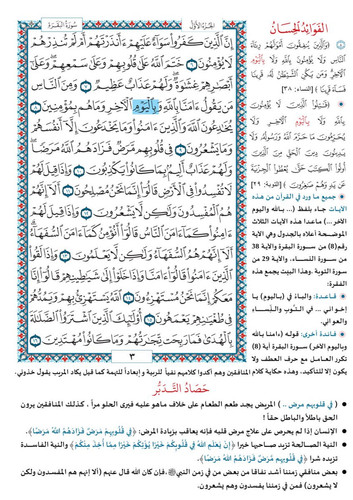 سُورَةُ البَقَرَةِ
الجزء الأول
إِنَّ ٱلَّذِينَ كَفَرُوا۟ سَوَآءٌ عَلَيْهِمْ ءَأَنذَرْتَهُمْ أَمْ لَمْ تُنذِرْهُمْ
لَا يُؤْمِنُونَ ٦ خَتَمَ ٱللَّهُ عَلَىٰ قُلُوبِهِمْ وَعَلَىٰ سَمْعِهِمْ وَعَلَىٰٓ
أَبْصَٰرِهِمْ غِشَٰوَةٌ وَلَهُمْ عَذَابٌ عَظِيمٌ ٧ وَمِنَ ٱلنَّاسِ
مَن يَقُولُ ءَامَنَّا بِٱللَّهِ وَبِٱلْيَوْمِ ٱلْءَاخِرِ وَمَا هُم بِمُؤْمِنِينَ ٨
يُخَٰدِعُونَ ٱللَّهَ وَٱلَّذِينَ ءَامَنُوا۟ وَمَا يَخْدَعُونَ إِلَّآ أَنفُسَهُمْ
وَمَا يَشْعُرُونَ ٩ فِى قُلُوبِهِم مَّرَضٌ فَزَادَهُمُ ٱللَّهُ مَرَضًا
وَلَهُمْ عَذَابٌ أَلِيمٌۢ بِمَا كَانُوا۟ يَكْذِبُونَ ١٠ وَإِذَا قِيلَ لَهُمْ
لَا تُفْسِدُوا۟ فِى ٱلْأَرْضِ قَالُوٓا۟ إِنَّمَا نَحْنُ مُصْلِحُونَ ١١ أَلَآ إِنَّهُمْ
هُمُ ٱلْمُفْسِدُونَ وَلَٰكِن لَّا يَشْعُرُونَ ١٢ وَإِذَا قِيلَ لَهُمْ
ءَامِنُوا۟ كَمَآ ءَامَنَ ٱلنَّاسُ قَالُوٓا۟ أَنُؤْمِنُ كَمَآ ءَامَنَ ٱلسُّفَهَآءُ
أَلَآ إِنَّهُمْ هُمُ ٱلسُّفَهَآءُ وَلَٰكِن لَّا يَعْلَمُونَ ١٣ وَإِذَا لَقُوا۟
ٱلَّذِينَ ءَامَنُوا۟ قَالُوٓا۟ ءَامَنَّا وَإِذَا خَلَوْا۟ إِلَىٰ شَيَٰطِينِهِمْ قَالُوٓا۟ إِنَّا
مَعَكُمْ إِنَّمَا نَحْنُ مُسْتَهْزِءُونَ ١٤ ٱللَّهُ يَسْتَهْزِئُ بِهِمْ وَيَمُدُّهُمْ
فِى طُغْيَٰنِهِمْ يَعْمَهُونَ ١٥ أُو۟لَٰٓئِكَ ٱلَّذِينَ ٱشْتَرَوُا۟ ٱلضَّلَٰلَةَ
بِٱلْهُدَىٰ فَمَا رَبِحَت تِّجَٰرَتُهُمْ وَمَا كَانُوا۟ مُهْتَدِينَ ١٦
٣
الفوائد الحسان
﴿وَٱلَّذِينَ يُنفِقُونَ أَمْوَٰلَهُمْ رِئَآءَ
ٱلنَّاسِ وَلَا يُؤْمِنُونَ بِٱللَّهِ وَلَا بِٱلْيَوْمِ
ٱلْءَاخِرِ وَمَن يَكُنِ ٱلشَّيْطَٰنُ لَهُۥ قَرِينًا
فَسَآءَ قَرِينًا﴾ [النساء: ٣٨]
﴿قَٰتِلُوا۟ ٱلَّذِينَ لَا يُؤْمِنُونَ
بِٱللَّهِ وَلَا بِٱلْيَوْمِ ٱلْءَاخِرِ وَلَا
يُحَرِّمُونَ مَا حَرَّمَ ٱللَّهُ وَرَسُولُهُۥ وَلَا
يَدِينُونَ دِينَ ٱلْحَقِّ مِنَ ٱلَّذِينَ
أُوتُوا۟ ٱلْكِتَٰبَ حَتَّىٰ يُعْطُوا۟ ٱلْجِزْيَةَ
عَن يَدٍ وَهُمْ صَٰغِرُونَ﴾ [التوبة: ٢٩]
جميع ما ورد في القرآن من هذه
الآيات جاء بلفظ (... بالله واليوم
الآخر ...) ماعدا هذه الآيات الثلاث
الموضحة أعلاه بالجدول وهي الآية
رقم(8) من سورة البقرة والآية 38
من سورة النساء، والآية 29 من
سورة التوبة ،وهذا البيت يجمع هذه
الفقرة:
قاعدة: والباء في (باليوم) يا
إخواني ... في التوب والنساء
والعوان
فائدة أخرى: قوله (ءامنا بالله
وباليوم الآخر) سورة البقرة آية (8)
تكرر العامل مع حرف العطف ولا
يكون إلا للتأكيد. وهذه حكاية كلام المنافقين وهم أكدوا كلامهم نفياً للريبة و إبعاداً للتهمة كما قيل يكاد المريب يقول خذوني.
حصاد التدبر
﴿ في قلوبهم مرض .. ﴾ المريض يجد طعم الطعام على خلاف ماهو عليه فيرى الحلو مراً ، كذلك المنافقين يرون
الحق باطلاً والباطل حقاً !
الإنسان إذا لم يحرص على علاج مرض قلبه فإنه يعاقب بزيادة المرض: ﴿فِي قُلُوبِهِم مَّرَضٌ فَزَادَهُمُ اللَّهُ مَرَضًا﴾.
النية الصالحة تزيد صاحبها خيرا ﴿إِنْ يَعْلَمِ اللَّهُ فِي قُلُوبِكُمْ خَيْرًا يُؤْتِكُمْ خَيْرًا مِمَّا أُخِذَ مِنْكُمْ﴾ والنية الفاسدة
تزيده شرا ﴿فِي قُلُوبِهِمْ مَرَضٌ فَزَادَهُمُ اللَّهُ مَرَضًا﴾
بعض منافقي زمننا أشد نفاقا من بعض من في زمن النبي ﷺ ،فإن كان الله قال عنهم (ألا إنهم هم المفسدون ولكن
لا يشعرون) فمن في زمننا يشعرون وهم مفسدون.